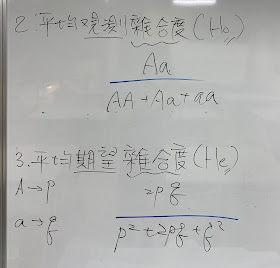 2. 平均觀測雜合度(Ho)
Aa
AA+Aa+aa
3. 平均期望雜合度(He)
A→p
2pq
a→q
p²+2pq+q²